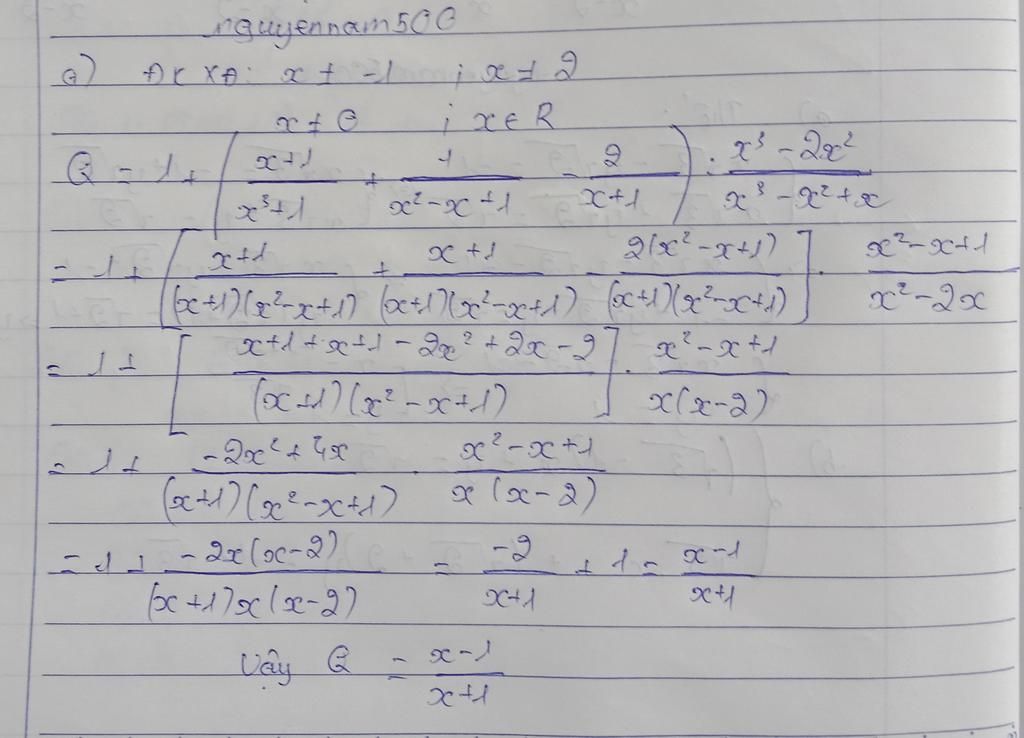 nguyennam500
a) ĐKXĐ: x ≠ -1 ; x ≠ 2
x ≠ 0 ; x ∈ R
Q = 1 + ( (x+1)/(x³+1) + 1/(x²-x+1) - 2/(x+1) ) : (x³-2x²)/(x³-x²+x)
= 1 + [ (x+1)/((x+1)(x²-x+1)) + (x+1)/((x+1)(x²-x+1)) - 2(x²-x+1)/((x+1)(x²-x+1)) ] . (x²-x+1)/(x²-2x)
= 1 + [ (x+1+x+1-2x²+2x-2)/((x+1)(x²-x+1)) ] . (x²-x+1)/(x(x-2))
= 1 + (-2x²+4x)/((x+1)(x²-x+1)) . (x²-x+1)/(x(x-2))
= 1 + (-2x(x-2))/((x+1)x(x-2)) = (-2)/(x+1) + 1 = (x-1)/(x+1)
Vậy Q = (x-1)/(x+1)